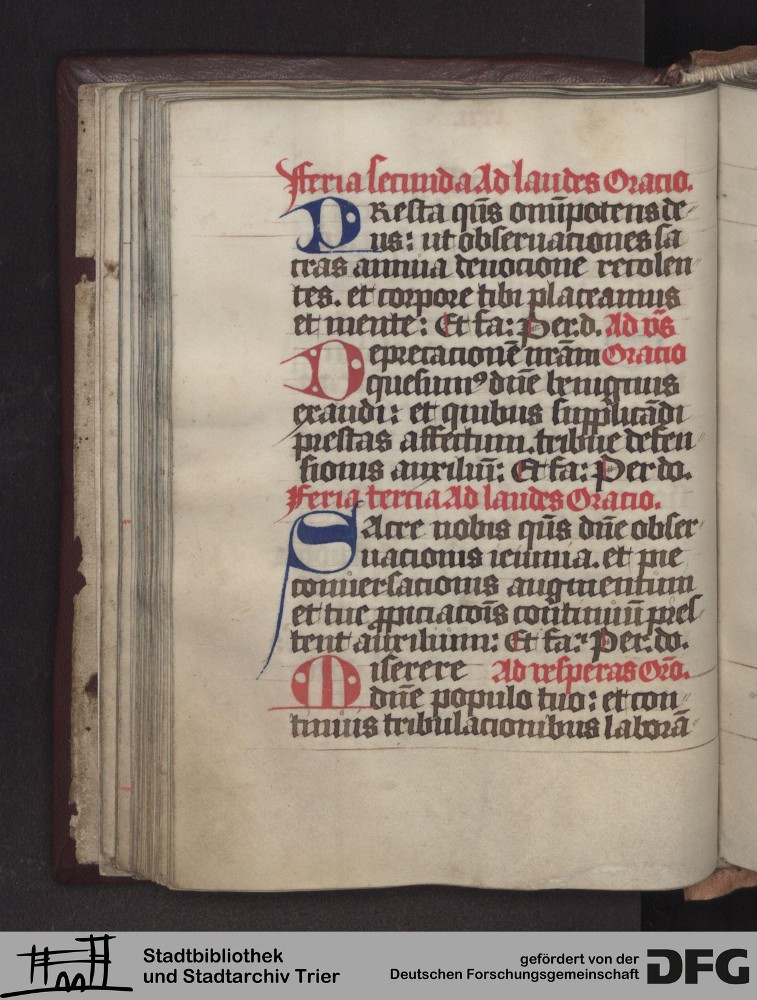 Feria secunda Ad laudes Oracio.
PResta q̄s om̄ipotens de-
us: ut obseruationes sa
cras annua deuocione recolen
tes. et corpore tibi placeamus
et mente: Et fa: Per.d. Ad v̄s
Deprecationē nr̄am Oracio
quesumꝰ dn̄e benignus
exaudi: et quibus supplicādi
prestas affectum. tribue defen
sionis auxiliū: Et fa: Per do.
Feria tercia Ad laudes Oracio.
SAcre nobis q̄s dn̄e obser
uacionis ieiunia. et pie
conuersacionis augmentum
et tue ꝓpiciacōis continuū pres
tent auxilium: Et fa: Per. do.
Miserere Ad vesperas Orō.
dn̄e populo tuo: et con
tinuis tribulacionibus laborā
Stadtbibliothek
und Stadtarchiv Trier
gefördert von der
Deutschen Forschungsgemeinschaft
DFG